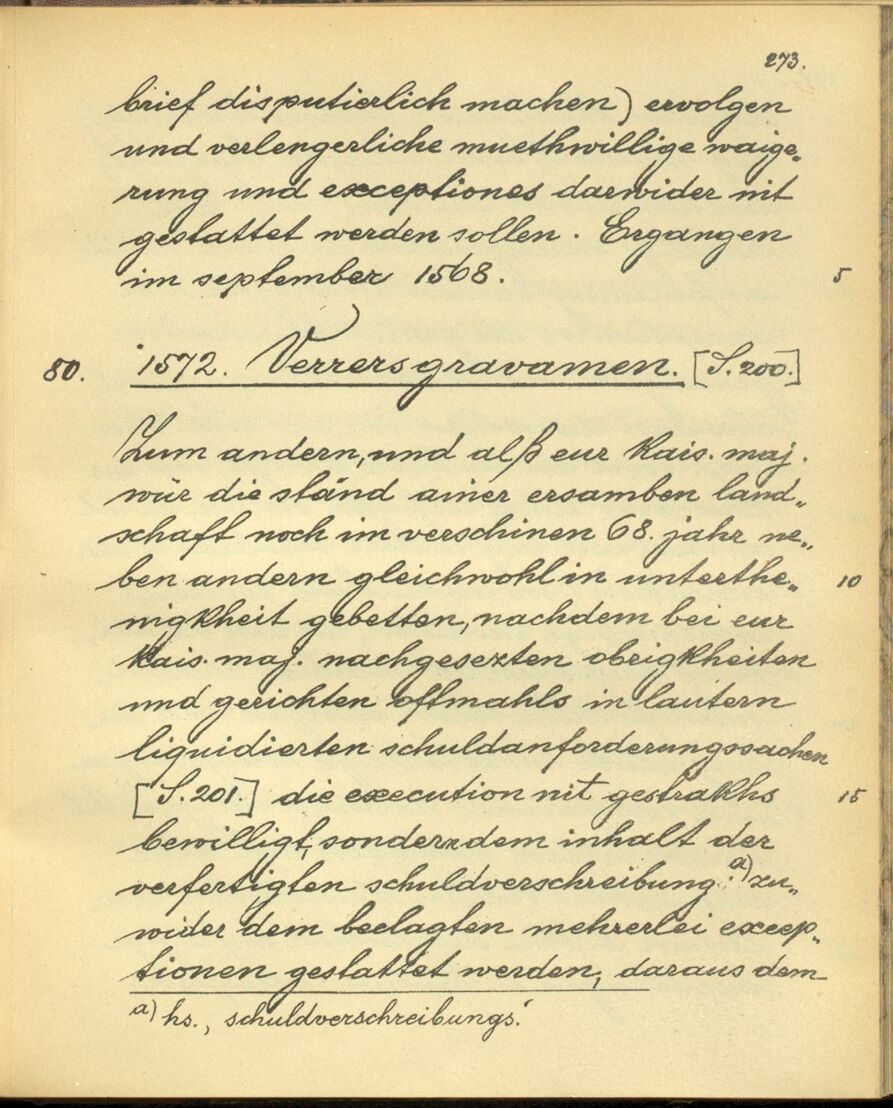 273.
brief disputierlich machen) ervolgen
und verlengerliche muethwillige waige„
rung und exceptiones darwider nit
gestattet werden sollen. Ergangen
im september 1568. 5
80. 1572. Verrers gravamen. [S. 200.]
Zum andern, und alß eur Kais. maj.
wür die ständ ainer ersamben land„
schaft noch im verschinen 68. jahr ne„
ben andern gleichwohl in unterthe„ 10
nigkheit gebetten, nachdem bei eur
Kais. maj. nachgesezten obrigkheiten
und gerichten oftmahls in lautern
liquidierten schuldanforderungssachen
[S. 201.] die execution nit gestrakhs 15
bewilligt, sondern dem inhalt der
verfertigten schuldverschreibung: a) zu„
wider dem beclagten mehrerlei excep„
tionen gestattet werden, daraus dem
a) hs., schuldverschreibungs.'